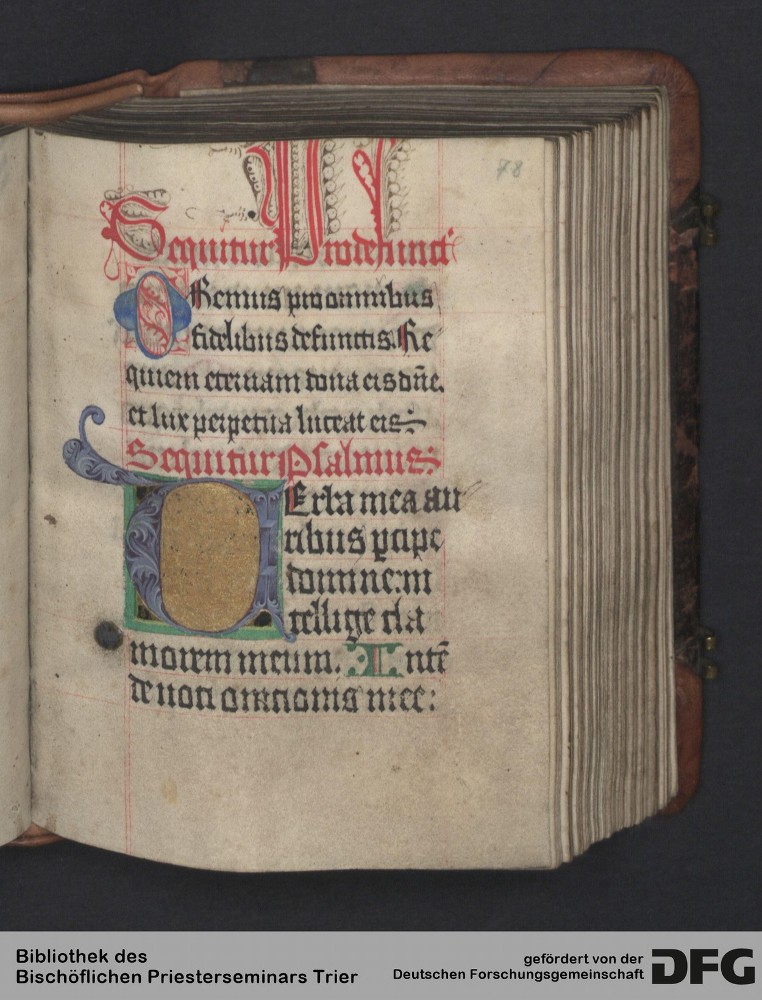 78
Sequitur Prodefunct
ORemus pro omnibus
fidelibus defunctis. Re
quiem eternam dona eis dñe.
et lux perpetua luceat eis:
Sequitur Psalmus:
UErba mea au
ribus pcipe
domine: in
tellige cla
morem meum. Intē
de uoci orationis mee:
Bibliothek des
Bischöflichen Priesterseminars Trier
gefördert von der
Deutschen Forschungsgemeinschaft
DFG